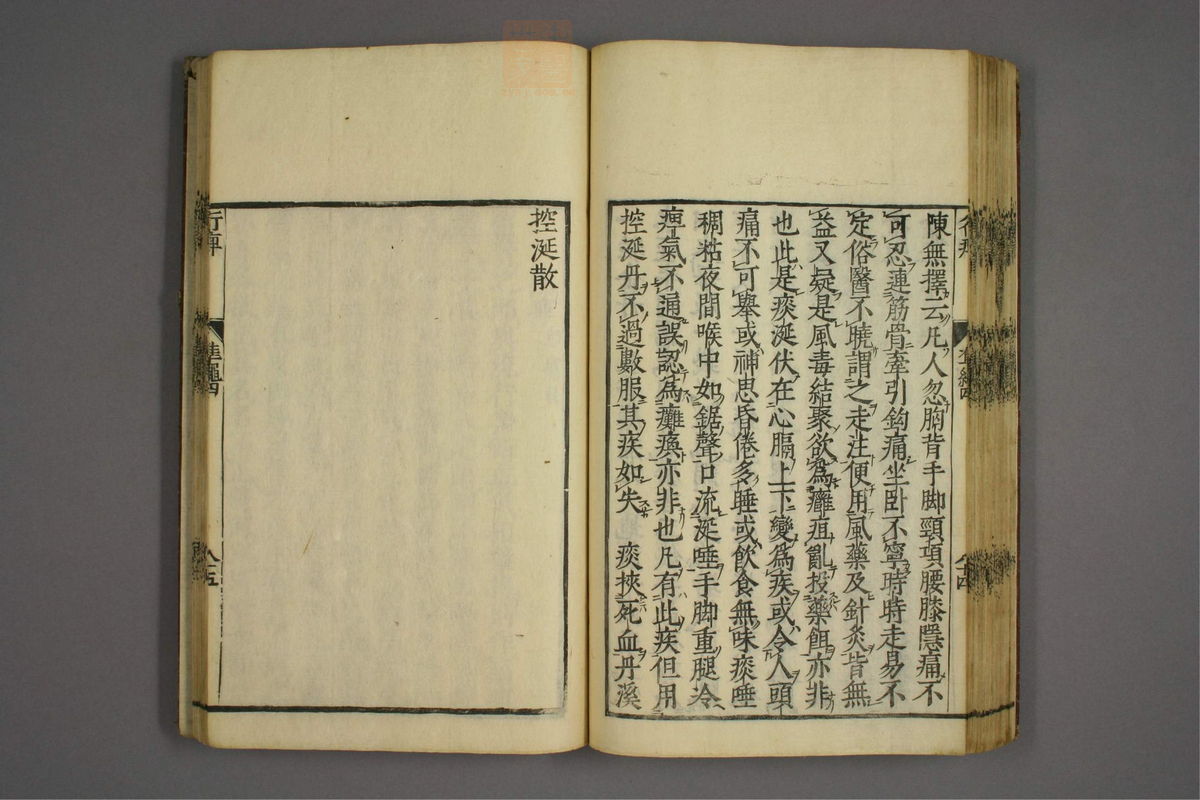 陳無擇云凡人忽胸背手脚頸項腰膝隱痛不
可忍連筋骨牽引鈎痛坐卧不寧時時走易不
定俗醫不曉謂之走注便用風藥及針灸皆無
益又疑是風毒結聚欲爲癰疽亂投藥餌亦非
也此是痰涎伏在心膈上下變爲疾或令人頭
痛不可舉或神思昏倦多睡或飲食無味痰唾
稠粘夜間喉中如鋸聲口流涎唾手脚重腿冷
痺氣不通誤認為癱瘓亦非也凡有此疾但用
控涎丹不過數服其疾如失　痰挾死血丹溪
控涎散
行痺
準繩四
八十五